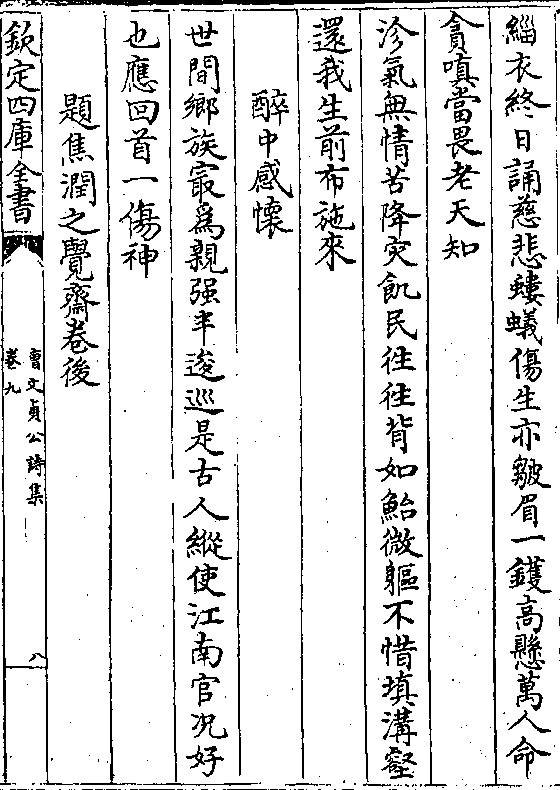 緇衣終日誦慈悲螻蟻傷生亦皺眉一鑊高懸萬人命
貪嗔當畏老天知
沴氣無情苦降灾飢民往往背如鮐微軀不惜填溝壑
還我生前布施來
醉中感懷
世間鄉族寂爲親强半逡巡是古人縱使江南官況好
也應回首一傷神
題焦潤之覺齋卷後
欽定四庫全書
曹文貞公詩集
卷九
八